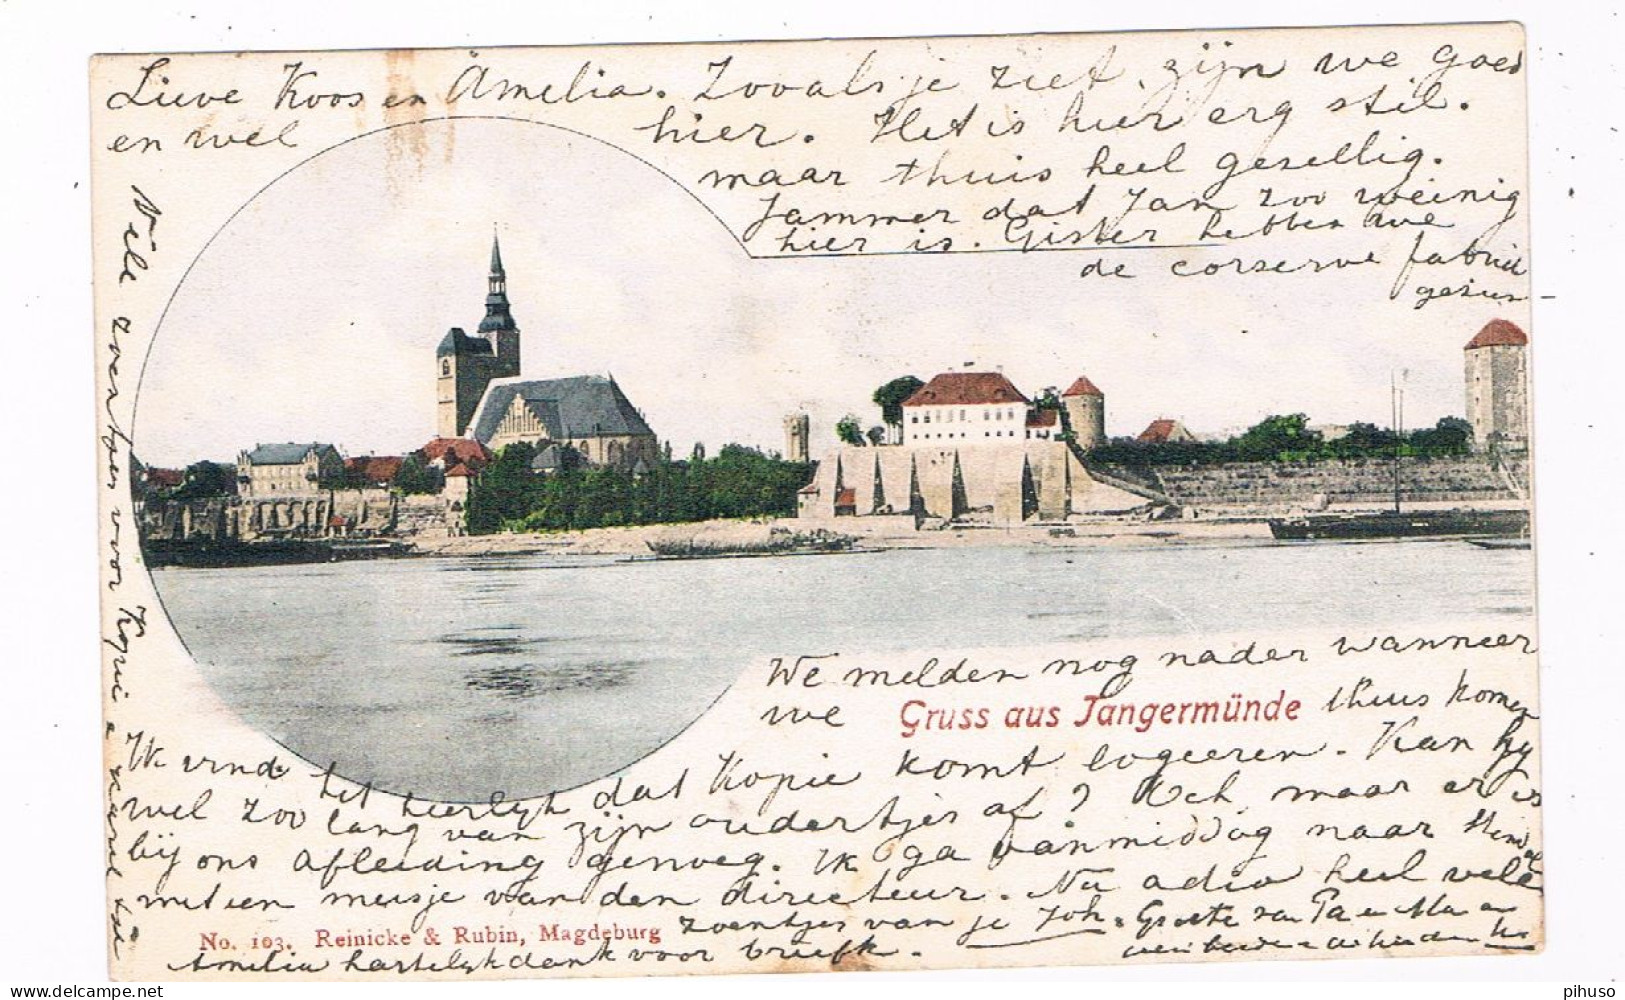 Lieve Koos en Amelia. Zooals je ziet, zijn we goed
en wel hier. Het is hier erg stil.
maar thuis heel gezellig.
Jammer dat Jan zoo weinig
hier is. Gister hebben we
de conserve fabriek
gezien
We melden nog nader wanneer
we thuis komen
Gruss aus Tangermünde
We vinden het heerlijk dat Kopie komt logeeren. Kan hij
wel zoo lang van zijn oudertjes af? Och, maar er is
bij ons afleiding genoeg. Ik ga vanmiddag naar Stendal
met een meisje van den directeur. Nu adio heel vele
zoentjes van je Joh. Groete van Pa en Ma en
No. 103. Reinicke & Rubin, Magdeburg
Amelia hartelijk dank voor briefk.
Vele zoentjes voor Kopie